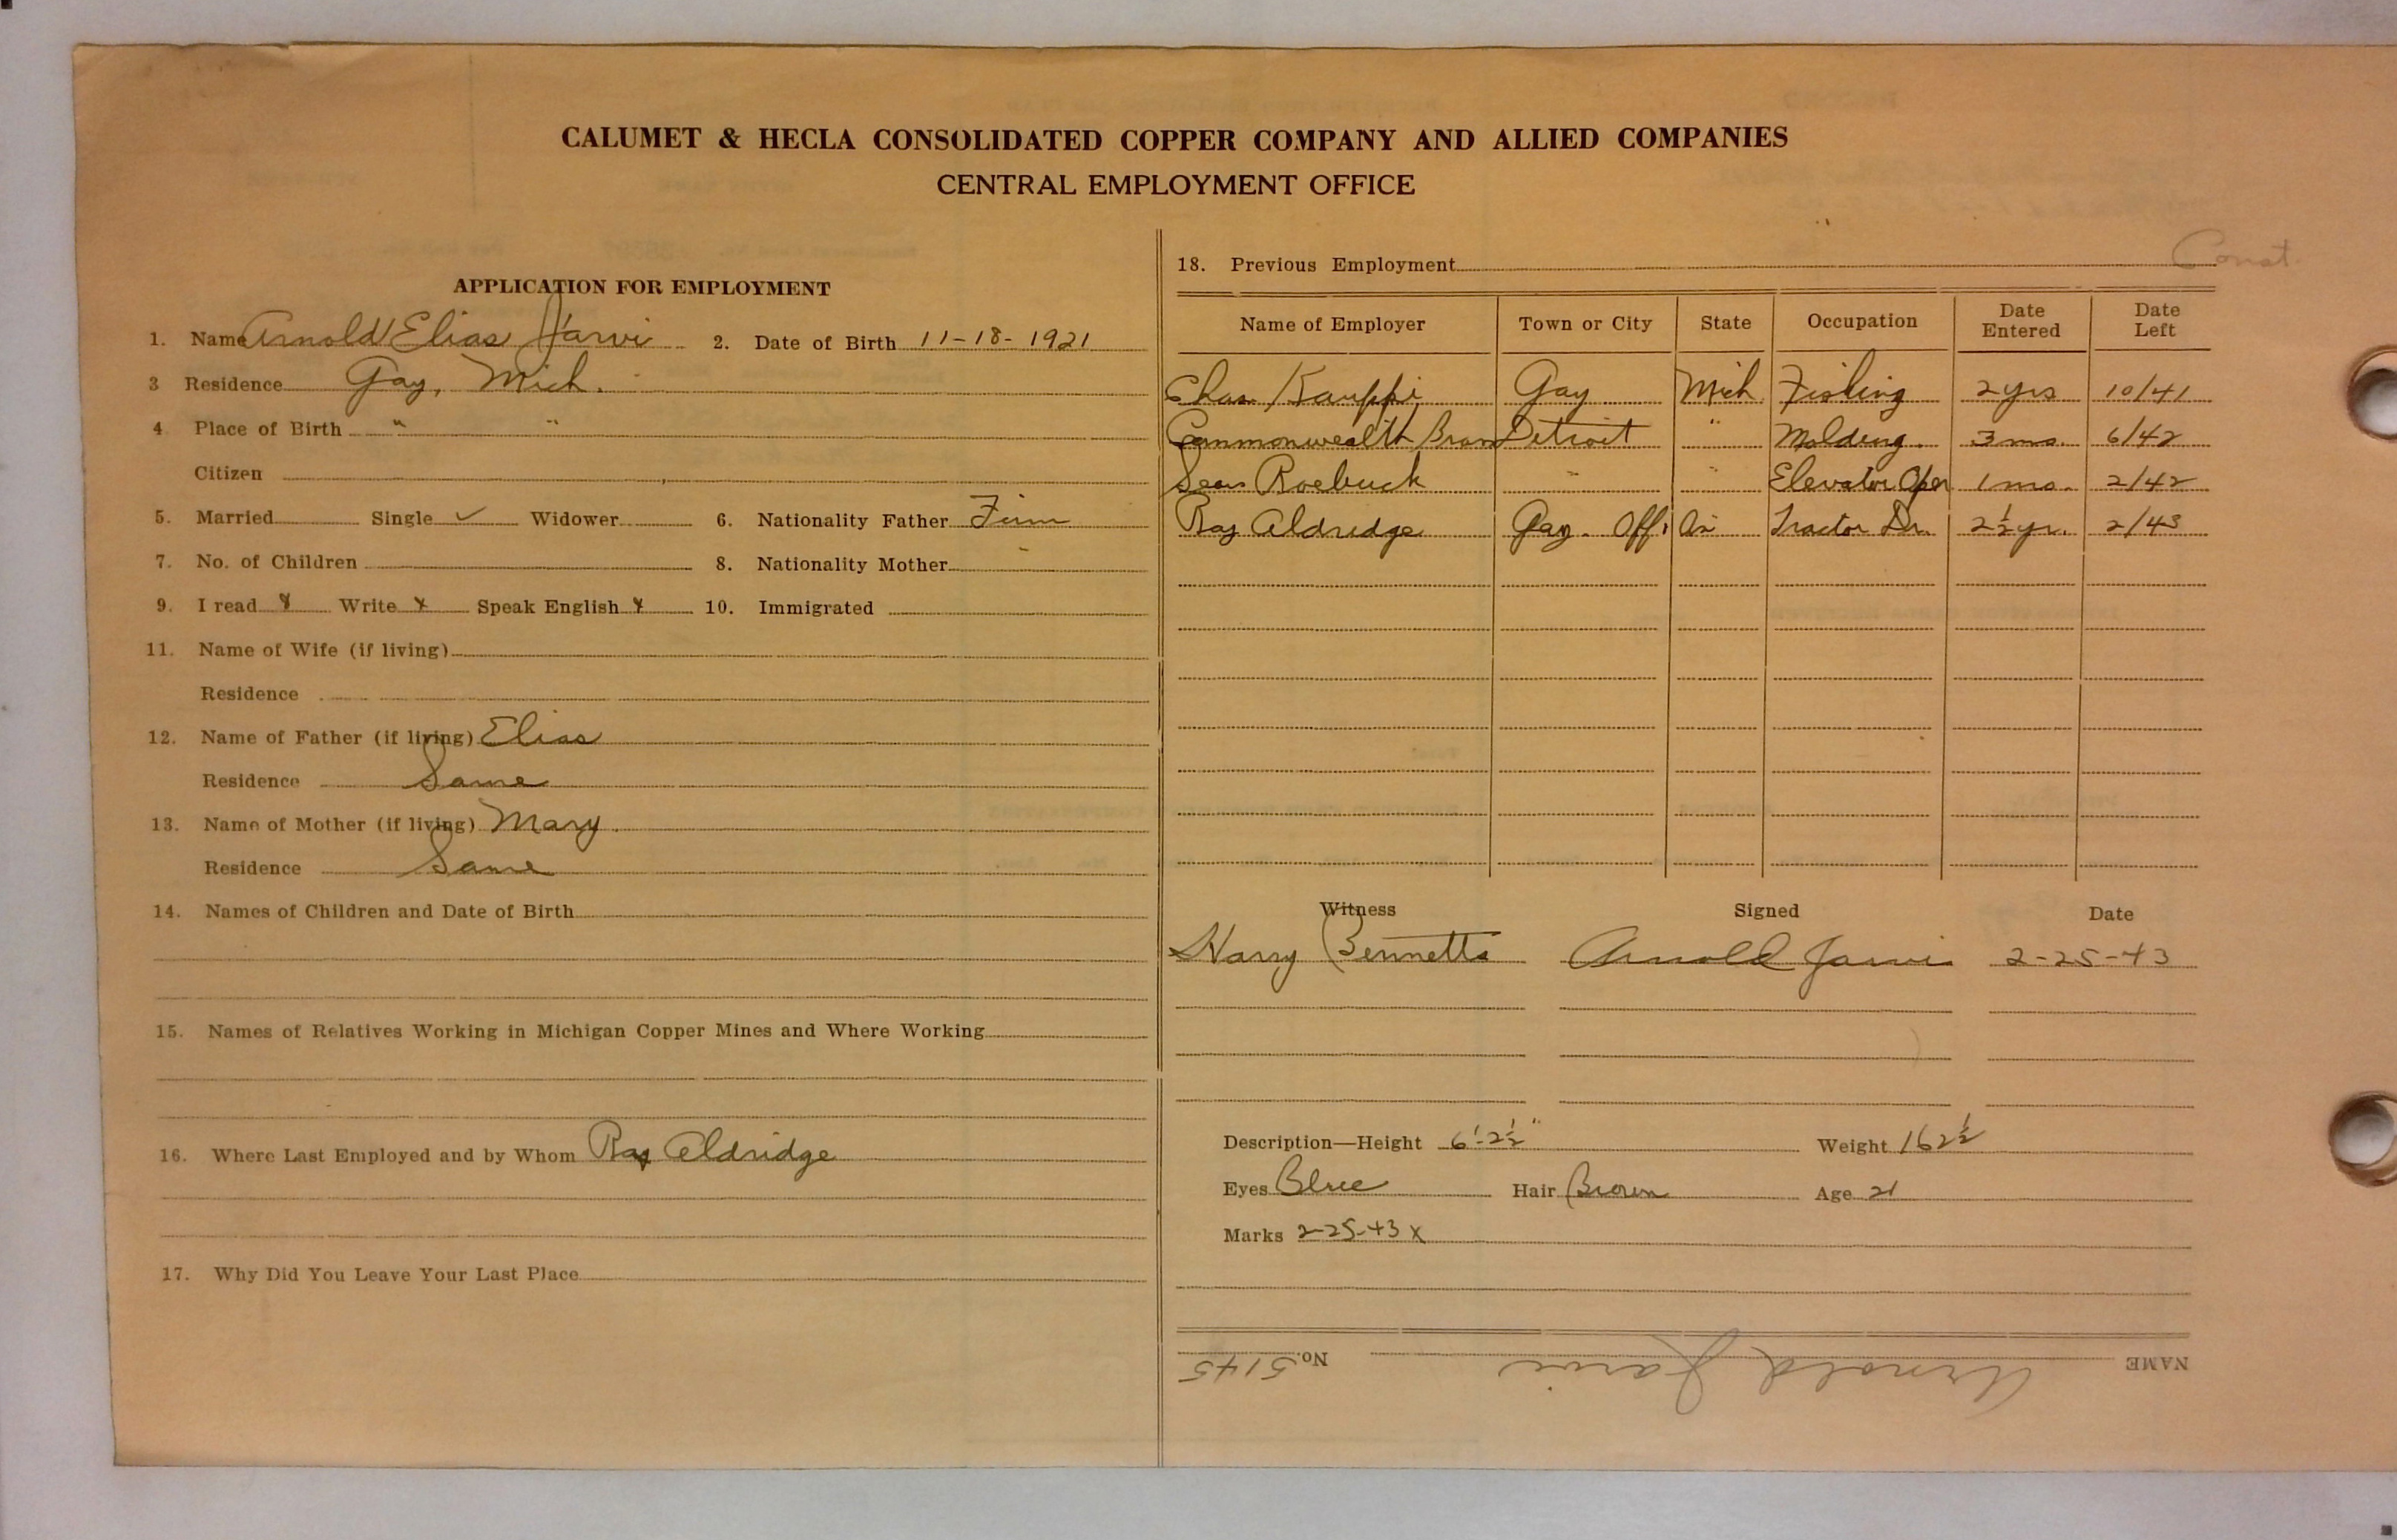 CALUMET & HECLA CONSOLIDATED COPPER COMPANY AND ALLIED COMPANIES
CENTRAL EMPLOYMENT OFFICE
APPLICATION FOR EMPLOYMENT
1. Name Arnold Elias Jarvi 2. Date of Birth 11-18-1921
3 Residence Gay, Mich.
4. Place of Birth " "
Citizen
5. Married Single ✓ Widower 6. Nationality Father Finn
7. No. of Children 8. Nationality Mother "
9. I read x Write x Speak English x 10. Immigrated
11. Name of Wife (if living)
Residence
12. Name of Father (if living) Elias
Residence Same
13. Name of Mother (if living) Mary
Residence Same
14. Names of Children and Date of Birth
15. Names of Relatives Working in Michigan Copper Mines and Where Working
16. Where Last Employed and by Whom Ray Aldridge
17. Why Did You Leave Your Last Place
Const.
18. Previous Employment
Name of Employer Town or City State Occupation Date Entered Date Left
Chas. Kauppi Gay Mich Fishing 2 yrs 10/41
Commonwealth Brass Detroit " Molding 3 mo. 6/42
Sears Roebuck " " Elevator Oper 1 mo. 2/42
Ray Aldridge Gay. Off & on Tractor Dr. 2½ yr. 2/43
Witness Signed Date
Harry Bennetts Arnold Jarvi 2-25-43
Description—Height 6'-2½" Weight 162½
Eyes Blue Hair Brown Age 21
Marks 2-25-43 x
NAME Arnold Jarvi No. 5145